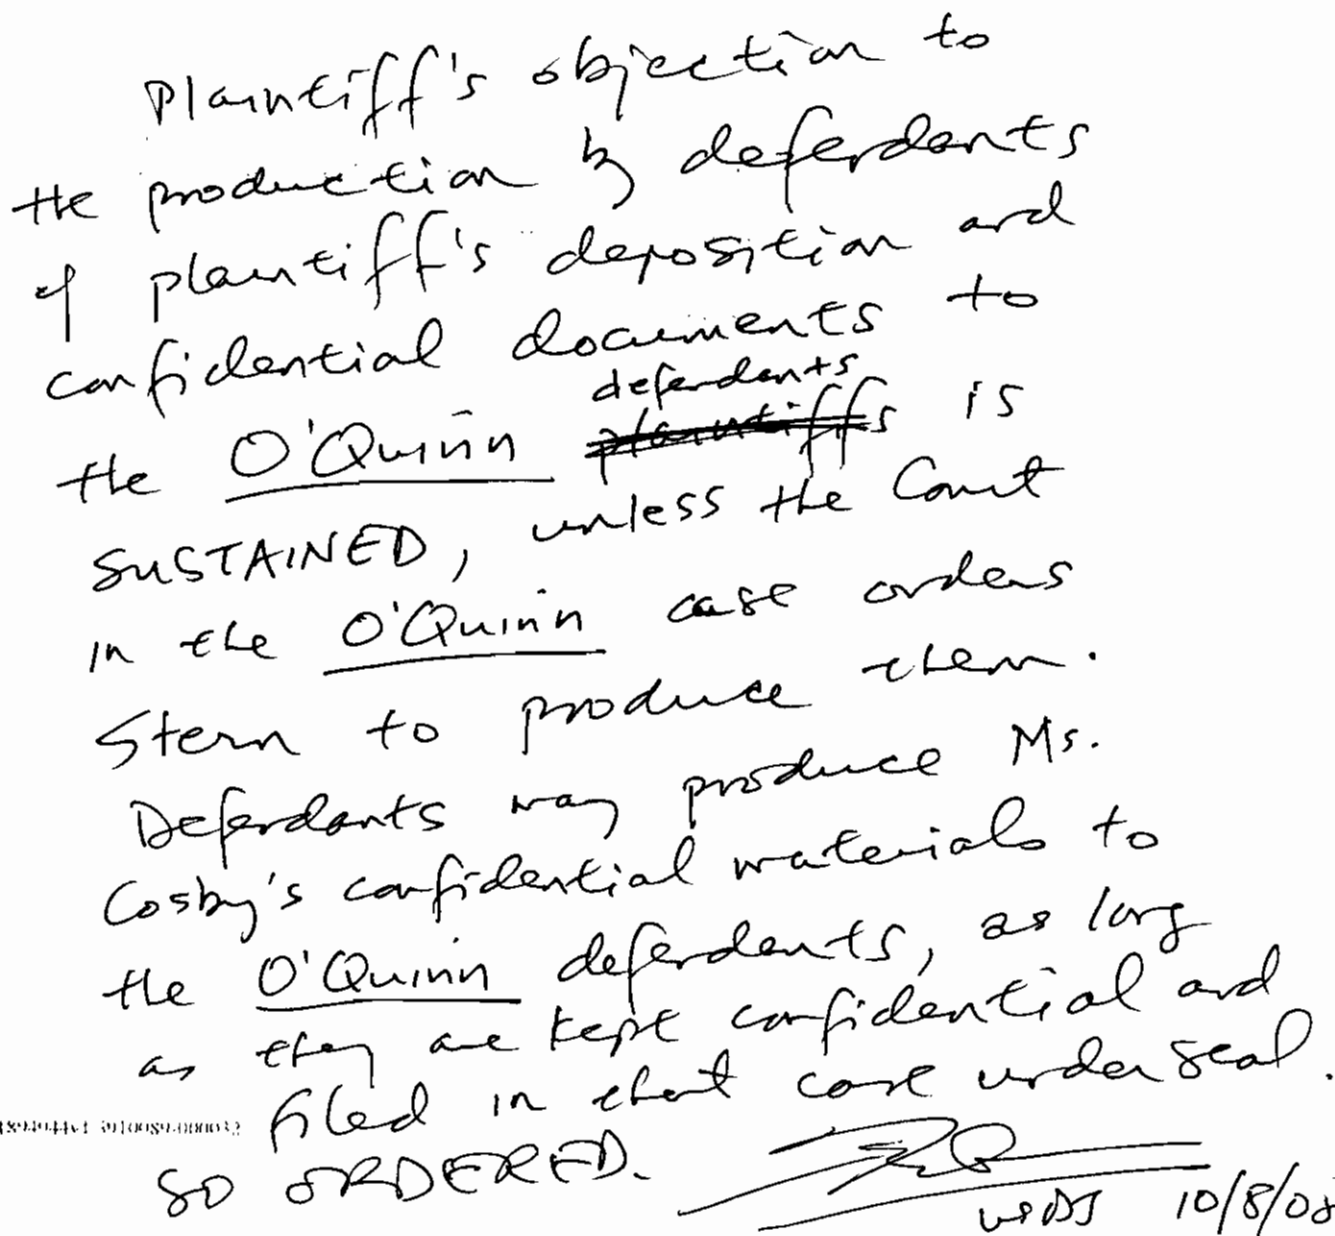 Plaintiff's objection to
the production by defendants
of plaintiff's deposition and
confidential documents to
defendants
the O'Quinn plaintiffs is
SUSTAINED, unless the Court
in the O'Quinn case orders
Stern to produce them.
Defendants may produce Ms.
Cosby's confidential materials to
the O'Quinn defendants, as long
as they are kept confidential and
filed in that case under seal.
SO ORDERED.
USDJ 10/8/08